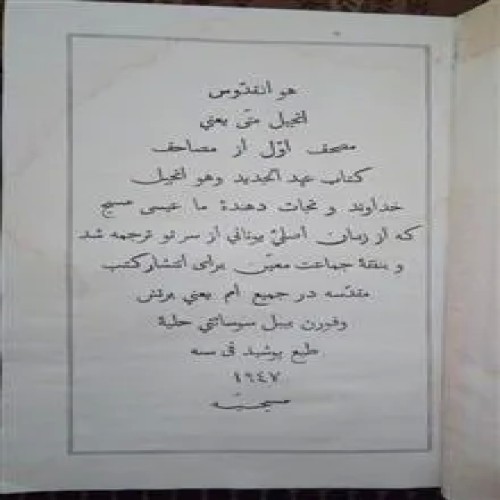 هو القدّوس
انجیل متّی یعنی
مصحف اوّل از مصاحف
کتاب عهد الجدید وهو انجیل
خداوند و نجات دهندهٔ ما عیسی مسیح
که از زبان اصلیٔ یونانی از سر نو ترجمه شد
و بنفقهٔ جماعت معیّن برای انتشار کتب
مقدّسه در جمیع امم یعنی برتش
وفورن بیبل سوسائتی حلیهٔ
طبع پوشید فی سنه
۱۹۴۷
مسیحیّه